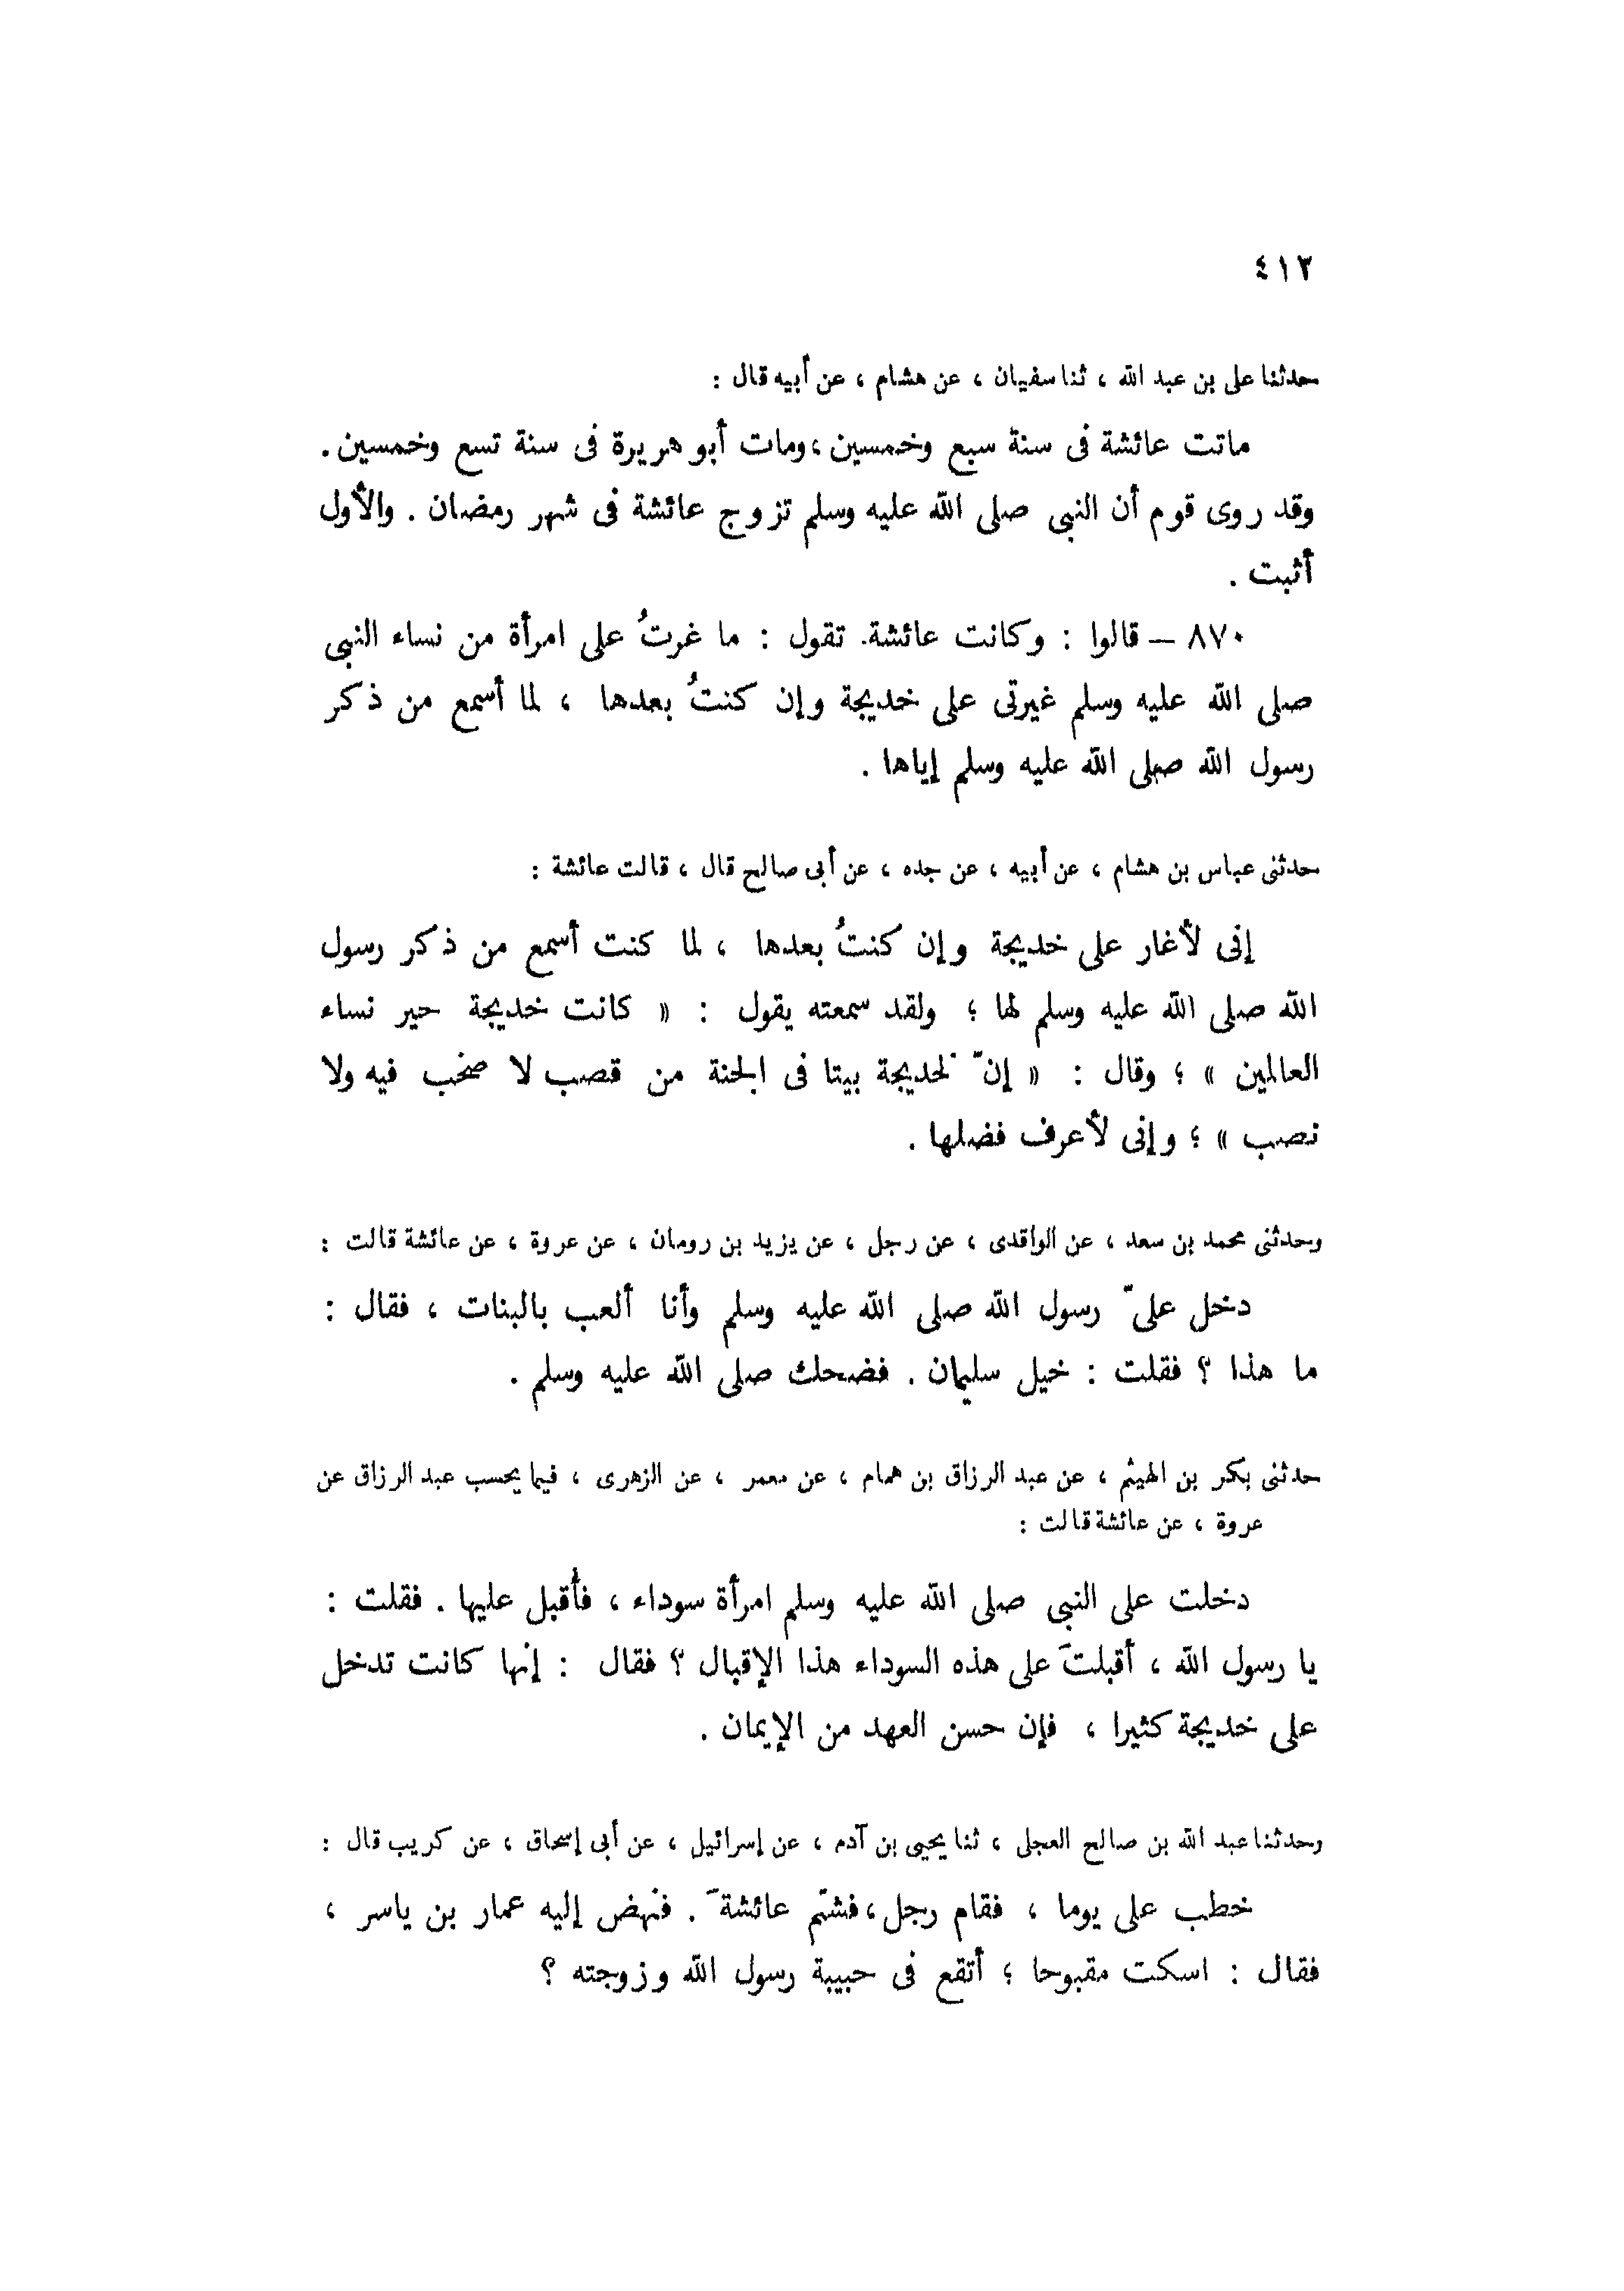 ٤١٢
حدثنا على بن عبد الله ، ثنا سفيان ، عن هشام ، عن أبيه قال :
ماتت عائشة فى سنة سبع وخمسين ، ومات أبو هريرة فى سنة تسع وخمسين .
وقد روى قوم أن النبى صلى الله عليه وسلم تزوج عائشة فى شهر رمضان . والأول
أثبت .
٨٧٠ – قالوا : وكانت عائشة . تقول : ما غرتُ على امرأة من نساء النبى
صلى الله عليه وسلم غيرتى على خديجة وإن كنتُ بعدها ، لما أسمع من ذكر
رسول الله صلى الله عليه وسلم إياها .
حدثنى عباس بن هشام ، عن أبيه ، عن جده ، عن أبى صالح قال ، قالت عائشة :
إنى لأغار على خديجة وإن كنتُ بعدها ، لما كنت أسمع من ذكر رسول
الله صلى الله عليه وسلم لها ؛ ولقد سمعته يقول : « كانت خديجة حير نساء
العالمين » ؛ وقال : « إنّ لخديجة بيتا فى الجنة من قصب لا صخب فيه ولا
نصب » ؛ وإنى لأعرف فضلها .
وحدثنى محمد بن سعد ، عن الواقدى ، عن رجل ، عن يزيد بن رومان ، عن عروة ، عن عائشة قالت :
دخل علىّ رسول الله صلى الله عليه وسلم وأنا ألعب بالبنات ، فقال :
ما هذا ؟ فقلت : خيل سليمان . فضحك صلى الله عليه وسلم .
حدثنى بكر بن الهيثم ، عن عبد الرزاق بن همام ، عن معمر ، عن الزهرى ، فيما يحسب عبد الرزاق عن
عروة ، عن عائشة قالت :
دخلت على النبى صلى الله عليه وسلم امرأة سوداء ، فأقبل عليها . فقلت :
يا رسول الله ، أقبلتَ على هذه السوداء هذا الإقبال ؟ فقال : إنها كانت تدخل
على خديجة كثيرا ، فإن حسن العهد من الإيمان .
وحدثنا عبد الله بن صالح العجلى ، ثنا يحيى بن آدم ، عن إسرائيل ، عن أبى إسحاق ، عن كريب قال :
خطب على يوما ، فقام رجل ، فشتم عائشةَ . فنهض إليه عمار بن ياسر ،
فقال : اسكت مقبوحا ؛ أتقع فى حبيبة رسول الله وزوجته ؟